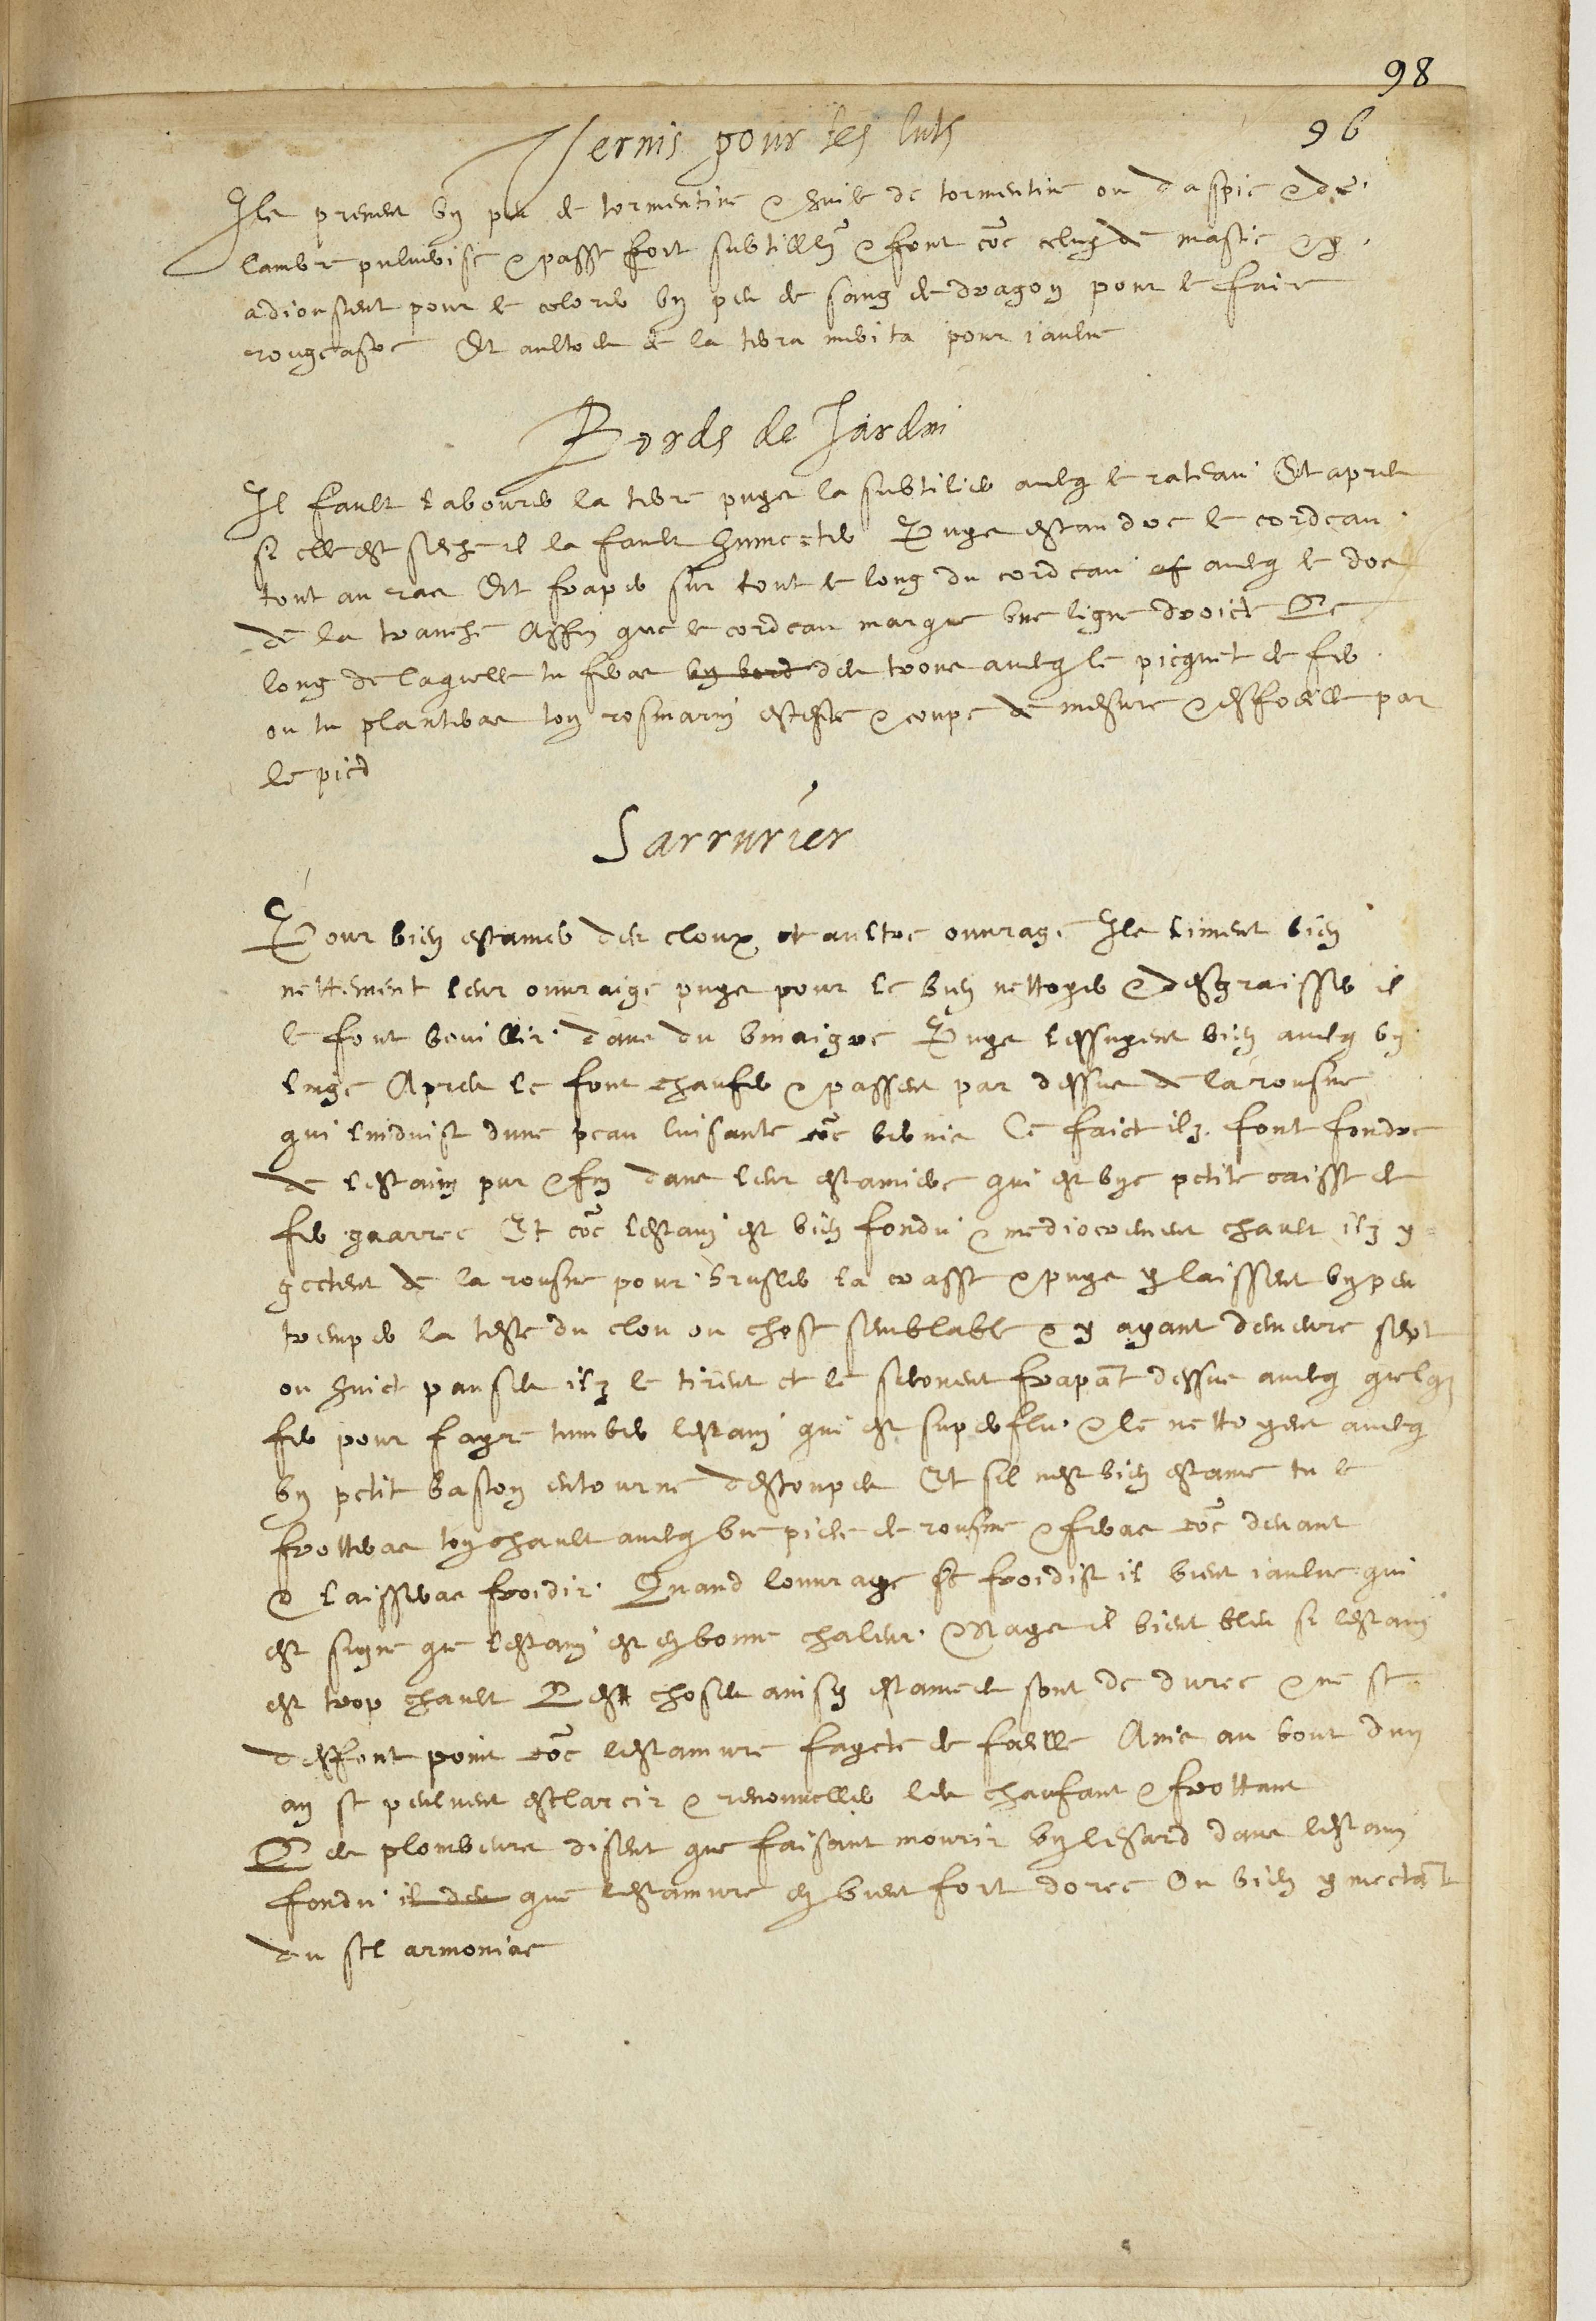 98
96
Vernis pour les luts
Ilz prenent un peu de tormentine & huile de tormentine ou daspic & de
lambre pulverisé & passé fort subtillem & font coe celuy de mastic & y
adioustent pour le colorer un peu de sang de dragon pour le faire
rougeastre Et aultres de la terra merita pour iaulne
Bords de Jardin
Il fault labourer la terre puys la subtilier avecq le rateau Et apres
si elle est seche il la fault humecter Puys estandre le cordeau
tout au ras Et fraper sur tout le long du cordeau af avecq le dos
de la tranche Affin que le cordeau marque une ligne droicte Le
long de laquelle tu feras un bord des trous avecq le picquet de fer
ou tu planteras ton rosmarin estesté & coupé de mesure & esfoeillé par
le pied
Sarrurier
Pour bien estamer des cloux et aultre ouvrage Ilz liment bien
nettement leur ouvraige puys pour le bien nettoyer & desgraisser il
le font bouillir dans du vinaigre Puys lessuyent bien avecq un
linge Apres le font chaufer & passent par dessus de la rousine
qui lenduist dune peau luisante coe vernis Ce faict ilz font fondre
de lestaim pur & fin dans leur estamiere qui est une petite caisse de
fer quarree Et coe lestain est bien fondu & mediocrement chault ilz y
gectent de la rousine pour brusler la crasse & puys y laissent un peu
tremper la teste du clou ou chose semblable & y ayant demeure sept
ou huict pauses ilz le tirent et le secouent frapant dessus avecq quelq
fer pour fayre tumber lestain qui est superflu & le nettoyent avecq
un petit baston entourné destoupes Et sil nest bien estamé tu le
frotteras ton chault avecq une piece de rousine & feras coe devant
& laisseras froidir Quand louvrage se froidist il vient iaulne qui
est signe que lestain est en bonne chaleur Mays il vient bleu si lestain
est trop chault Les choses ainsy estamees sont de duree & ne se
deffont point coe lestamure faycte de foeille Ains au bout dun
an se peuvent esclarcir & renouveller les chaufant & frottant
Les plombeurs disent que faisant mourir un lesard dans lestain
fondu il des que lestamure en vient fort doree Ou bien y mectant
du sel armoniac